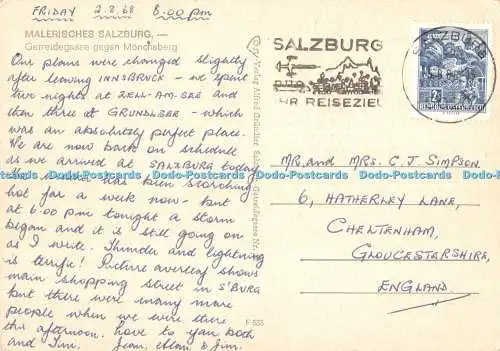 FRIDAY 2.8.68 8.00 pm
MALERISCHES SALZBURG. —
Getreidegasse gegen Mönchsberg
Our plans were changed slightly
after leaving INNSBRUCK – we spent
two nights at ZELL-AM-SEE and
then three at GRUNDLSEE – which
was an absolutely perfect place.
We are now back on schedule
as we arrived at SALZBURG today.
The weather has been scorching
hot for a week now – but
at 6.00 pm tonight a storm
began and it is still going on
as I write. Thunder and lightning
is terrific! Picture overleaf shows
main shopping street in S'BURG
but there were many more
people when we were there
this afternoon. Love to you both
and Tim. Jean, Alan & Jim.
F 533
Verlag Alfred Gründler, Salzburg, Getreidegasse Nr.
SALZBURG
IHR REISEZIEL
SALZBURG
2 S
REPUBLIK ÖSTERREICH
MR. and MRS. C. J. SIMPSON.
6, HATHERLEY LANE,
CHELTENHAM,
GLOUCESTERSHIRE,
ENGLAND.
Dodo-Postcards